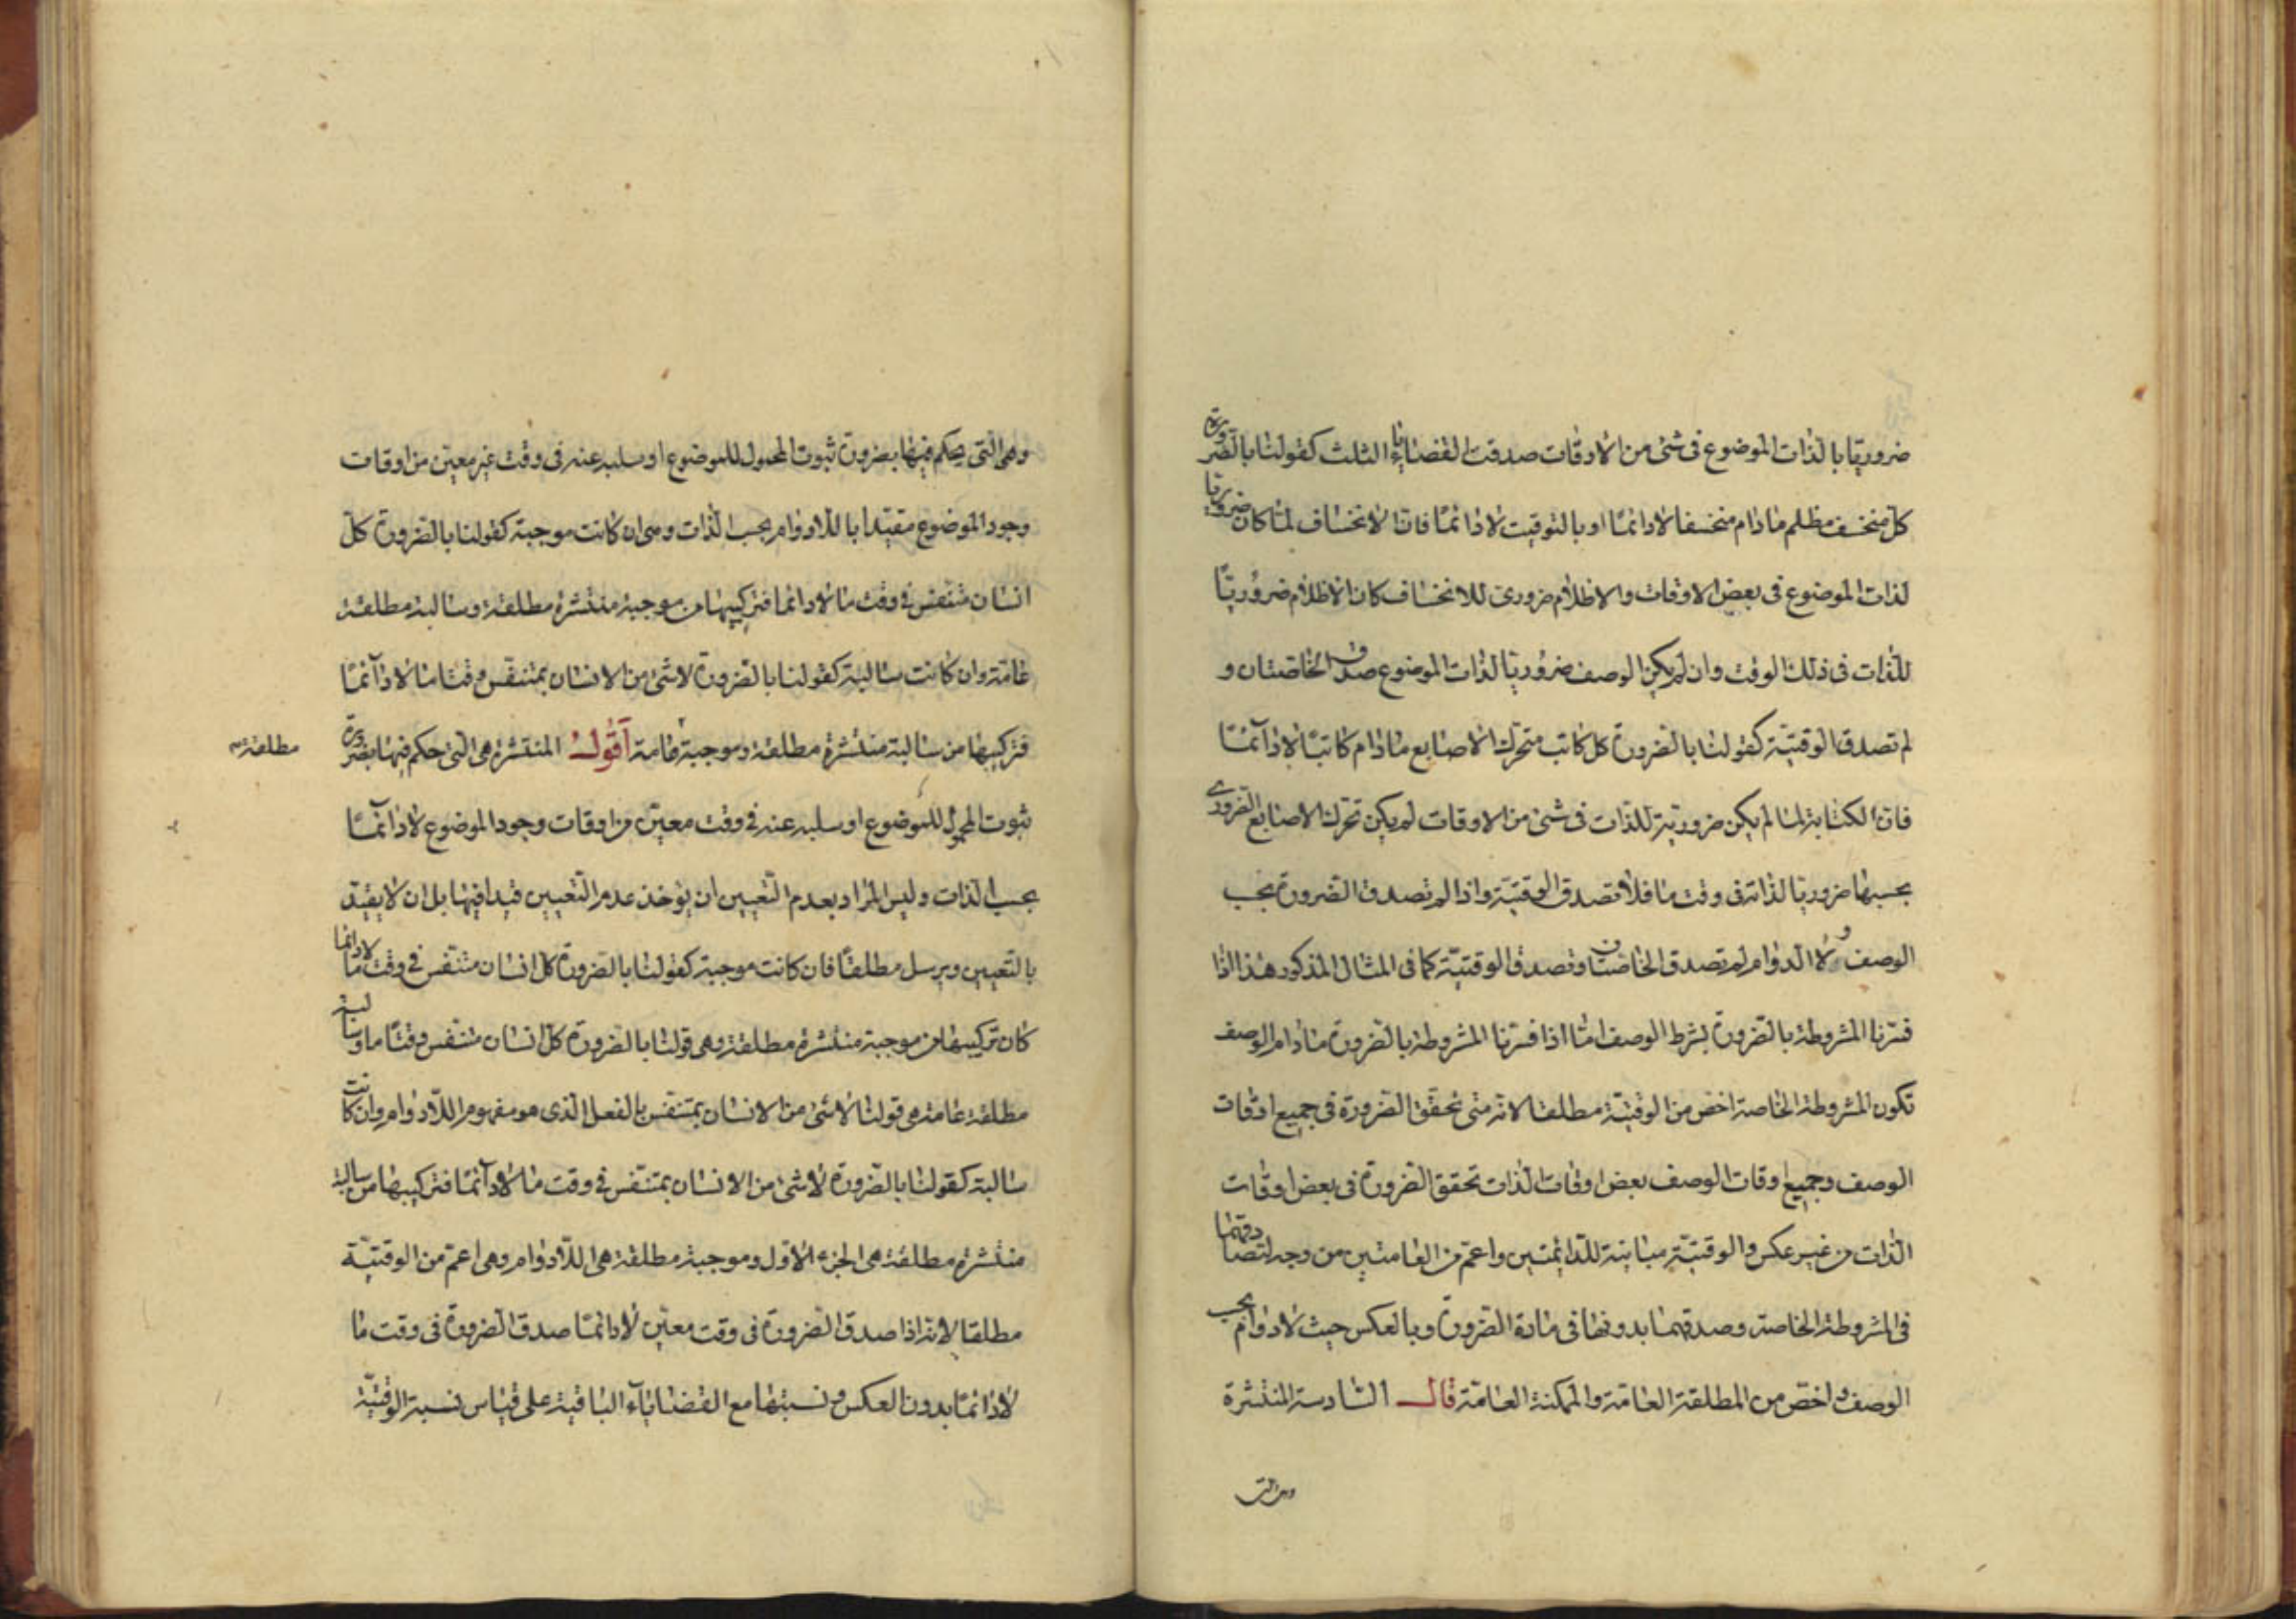 ضروريّا بالذات الموضوع فى شئ من الاوقات صدقت القضايا الثلث كقولنا بالضرورة
كلّ منخسف مظلم مادام منخسفا لا دائمًا او بالتوقيت لا دائمًا فانّ الانخساف لمّا كان ضروريا
لذات الموضوع فى بعض الاوقات والاظلام ضرورى للانخساف كان الاظلام ضروريّا
للذات فى ذلك الوقت وان لم يكن الوصف ضروريا لذات الموضوع صدق الخاصّتان و
لم تصدق الوقتيّة كقولنا بالضرورة كل كاتب متحرك الاصابع مادام كاتبًا لا دآئمًا
فانّ الكتابة لمّا لم يكن ضروريّة للذّات فى شئ من الاوقات لم يكن تحرك الاصابع الضرورى
بحسبها ضروريا لذاته فى وقت ما فلا تصدق الوقتيّة واذا لم تصدق الضرورة بحسب
الوصف ولا الدوام لم تصدق الخاصّتان وتصدق الوقتيّة كما فى المثال المذكور هذا اذا
فسّرنا المشروطة بالضرورة بشرط الوصف امّا اذا فسّرنا المشروطة بالضرورة مادام الوصف
تكون المشروطة الخاصة اخصّ من الوقتيّة مطلقا لانه متى تحقّق الضرورة فى جميع اوقات
الوصف وجميع اوقات الوصف بعض اوقات الذات تحقق الضرورة فى بعض اوقات
الذات من غير عكس والوقتيّة مباينة للدّائمتين واعمّ من العامتين من وجه لتصادقهما
فى المشروطة الخاصة وصدقهما بدونها فى مادة الضرورة وبالعكس حيث لا دوام بحسب
الوصف واخصّ من المطلقة العامّة والممكنة العامّة قال السّادسة المنتشرة
وهى التى
وهى الّتى يحكم فيها بضرورة ثبوت المحمول للموضوع او سلبه عنه فى وقت غير معيّن من اوقات
وجود الموضوع مقيّدا باللادوام بحسب الذات وهى ان كانت موجبة كقولنا بالضرورة كلّ
انسان متنفّس فى وقت ما لا دائما فتركيبها من موجبة منتشرة مطلقة وسالبة مطلقة
عامّة وان كانت سالبة كقولنا بالضرورة لا شئ من الانسان بمتنفّس وقتا ما لا دآئمًا
فتركيبها من سالبة منتشرة مطلقة وموجبة عامة اقول المنتشرة هى الّتى حكم فيها بضرورة
مطلقة
ثبوت المحمول للموضوع او سلبه عنه فى وقت معيّن من اوقات وجود الموضوع لا دائمًا
بحسب الذات وليس المراد بعدم التّعيين ان يؤخذ عدم التّعيين قيدا فيها بل ان لا يقيّد
بالتّعيين ويرسل مطلقًا فان كانت موجبة كقولنا بالضرورة كل انسان متنفّس فى وقت ما لا دائما
كان تركيبها من موجبة منتشرة مطلقة وهى قولنا بالضرورة كلّ انسان متنفّس وقتًا ما وسالبة
مطلقة عامة هى قولنا لا شئ من الانسان بمتنفّس بالفعل الذى هو مفهوم اللّادوام وان كانت
سالبة كقولنا بالضرورة لا شئ من الانسان بمتنفّس فى وقت ما لا دآئمًا فتركيبها من سالبة
منتشرة مطلقة هى الجزء الاوّل وموجبة مطلقة هى اللّادوام وهى اعمّ من الوقتيّة
مطلقا لانه اذا صدق الضرورة فى وقت معيّن لا دائمًا صدق الضرورة فى وقت ما
لا دائمًا بدون العكس ونسبتها مع القضايا الباقية على قياس نسبة الوقتيّة